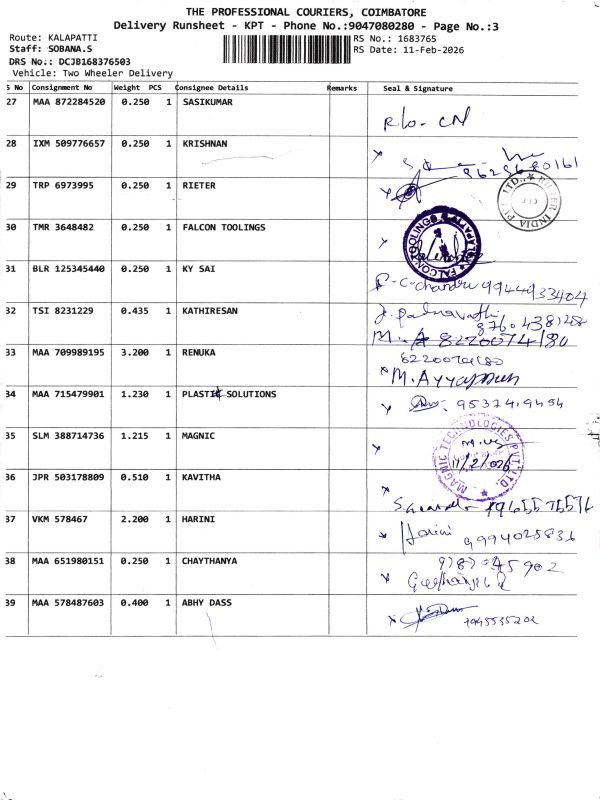 THE PROFESSIONAL COURIERS, COIMBATORE
Delivery Runsheet - KPT - Phone No.:9047080280 - Page No.:3
Route: KALAPATTI
Staff: SOBANA.S
DRS No.: DCJB168376503
Vehicle: Two Wheeler Delivery
RS No.: 1683765
RS Date: 11-Feb-2026
S No Consignment No Weight PCS Consignee Details Remarks Seal & Signature
27 MAA 872284520 0.250 1 SASIKUMAR
28 IXM 509776657 0.250 1 KRISHNAN
29 TRP 6973995 0.250 1 RIETER
RIETER INDIA PVT. LTD.,
30 TMR 3648482 0.250 1 FALCON TOOLINGS
FALCON TOOLINGS
31 BLR 125345440 0.250 1 KY SAI
9944933404
32 TSI 8231229 0.435 1 KATHIRESAN
33 MAA 709989195 3.200 1 RENUKA
M. Ayyappan
34 MAA 715479901 1.230 1 PLASTIC SOLUTIONS
35 SLM 388714736 1.215 1 MAGNIC
MAGNIC TECHNOLOGIES PVT. LTD.
11/2/026
36 JPR 503178809 0.510 1 KAVITHA
37 VKM 578467 2.200 1 HARINI
Harini 9994025836
38 MAA 651980151 0.250 1 CHAYTHANYA
39 MAA 578487603 0.400 1 ABHY DASS